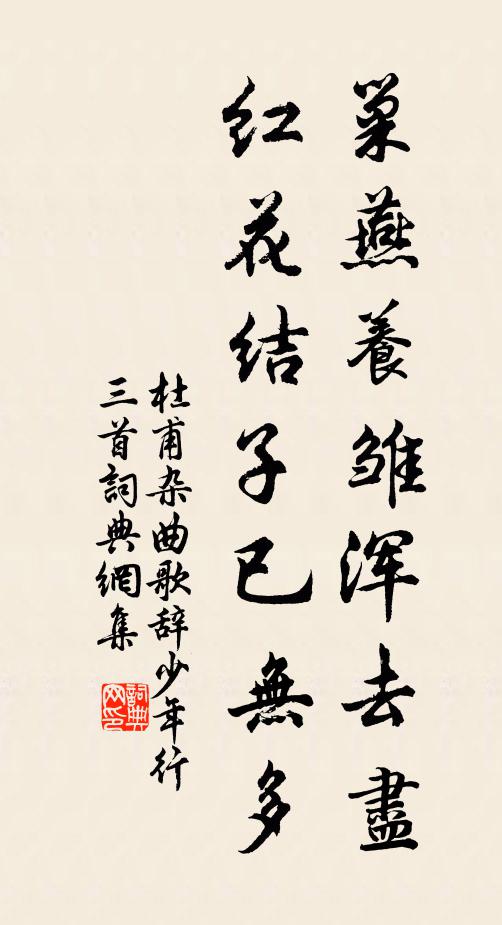 巢燕養雏渾去盡
红花结子已無多
杜甫杂曲歌辞少年行
三首詞典網集
詞典
网印